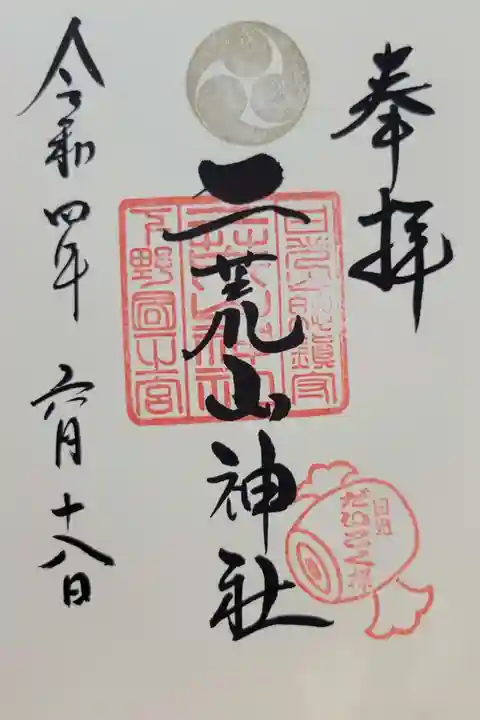 奉拝
日光総鎮守
二荒山神社
二荒山神社
下野國一之宮
日光
だいこく様
令和四年 六月十八日